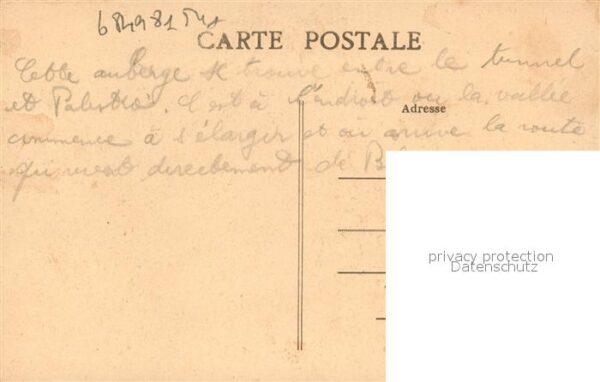 CARTE POSTALE
Cette auberge se trouve entre le tunnel
et Palestro. C'est à l'endroit où la vallée
Adresse
commence à s'élargir et où arrive la route
qui vient directement de
privacy protection
Datenschutz